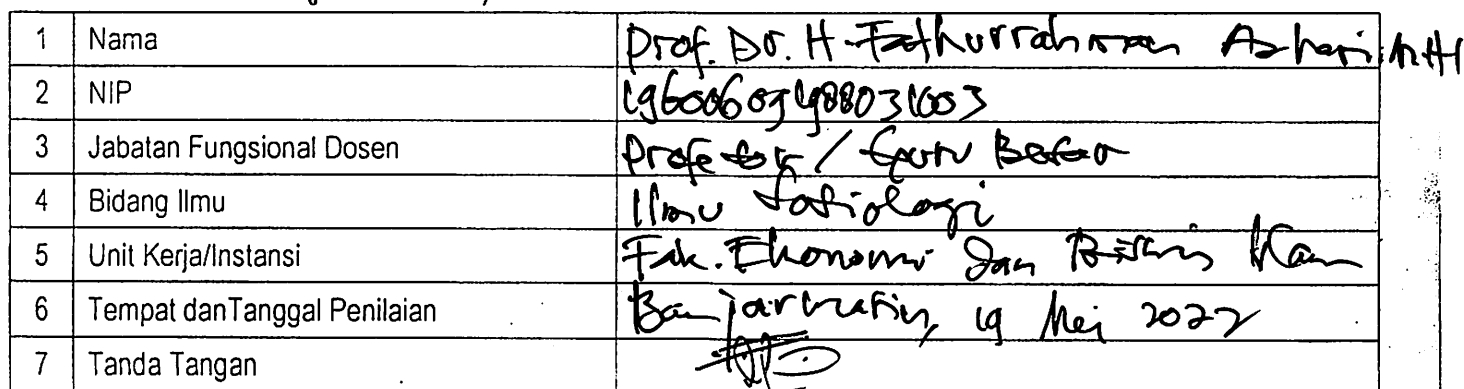 1 Nama Prof. Dr. H. Fathurrahman Azhari, MHI
2 NIP 196006091988031003
3 Jabatan Fungsional Dosen Profesor / Guru Besar
4 Bidang Ilmu Ilmu Sosiologi
5 Unit Kerja/Instansi Fak. Ekonomi dan Bisnis Islam
6 Tempat danTanggal Penilaian Banjarmasin, 19 Mei 2022
7 Tanda Tangan